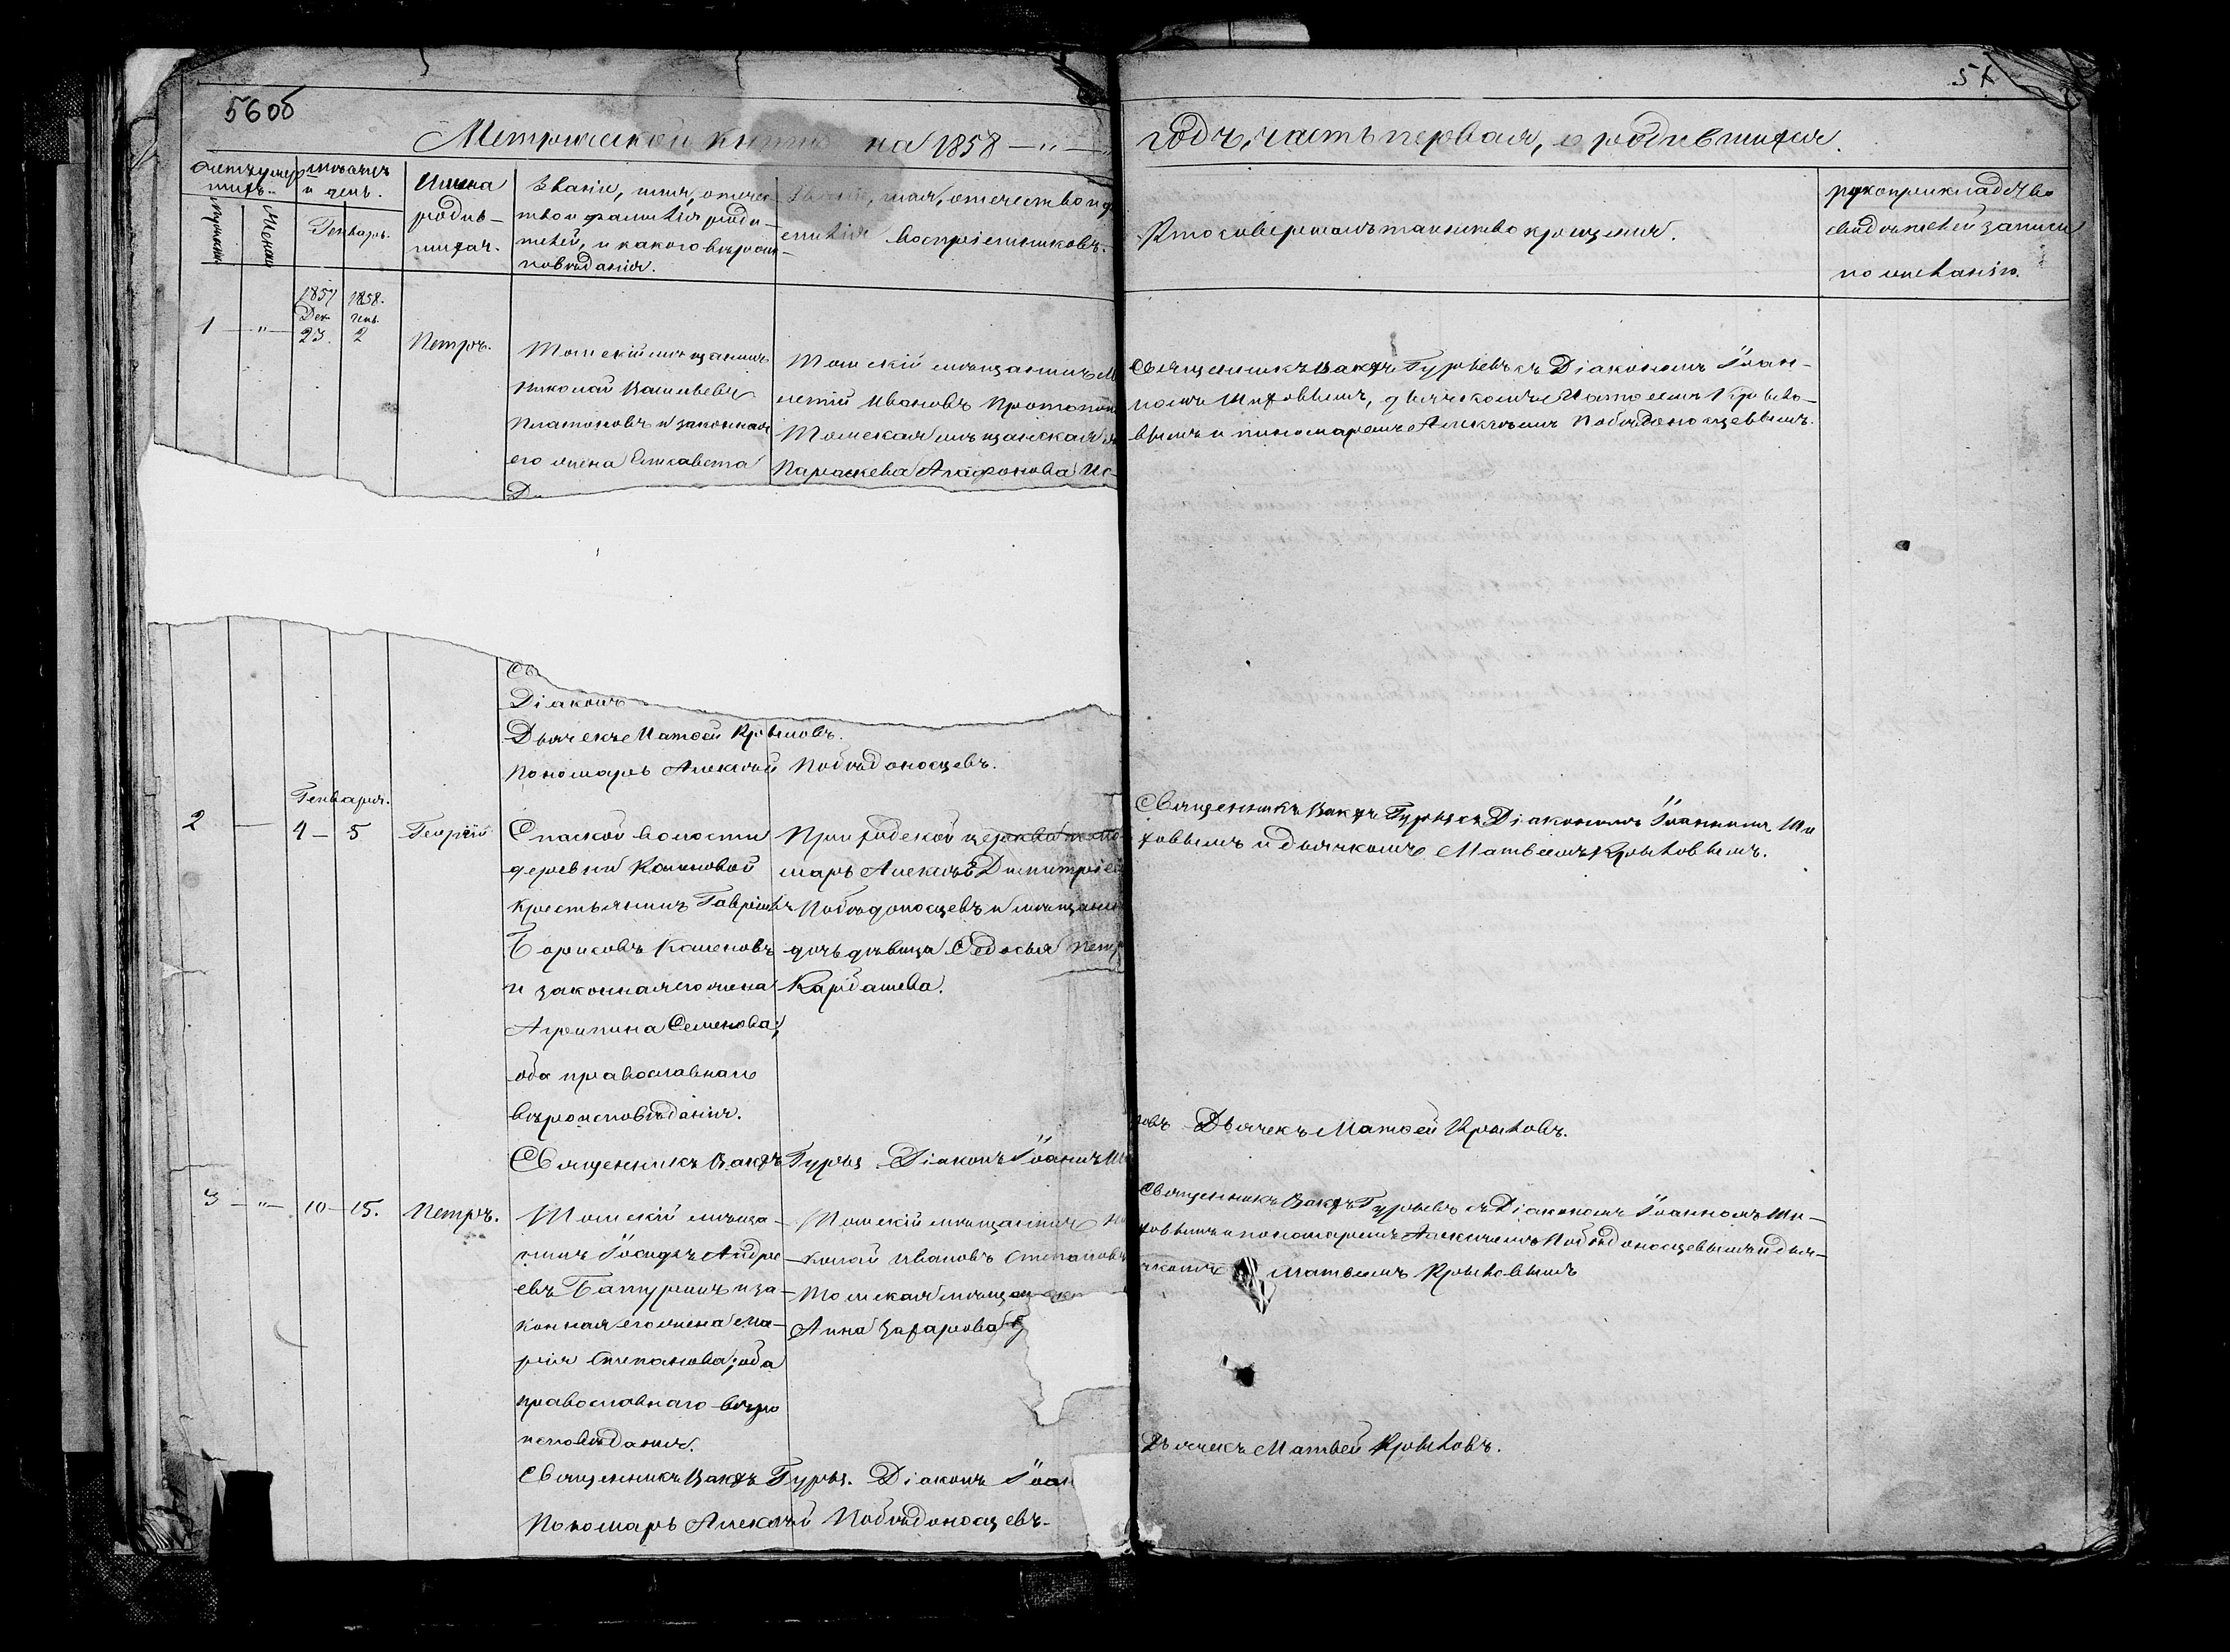 56об
57
Метрической книги на 1858 — " —
годъ, часть первая, о родившихся.
Счетъ родившихся.
Мужеска
Женска
Мѣсяцъ и день.
Генварь.
Имена
родив-
шихся.
Званіе, имя, отече
ство и фамилія роди-
телей, и какого вѣроис-
повѣданія.
Званіе, имя, отечество и ф
милія воспріемниковъ.
Кто совершалъ таинство крещенія.
рукоприкладство
свидѣтелей записи
по желанію.
1 — " —
1857 1858.
Дек. Генв.
23. 2
Петръ.
Томскій мѣщанинъ
Николай Васильевъ
Платоновъ и законная
его жена Елисавета
Томскій мѣщанинъ М
летій Ивановъ Протопоп
Томская мѣщанская
Параскева Агафонова Ис-
Священникъ Вакхъ Гурьевъ съ Діакономъ Іоан-
номъ Шиховымъ, дьячкомъ Матѳеемъ Крыло-
вымъ и пономаремъ Алексѣемъ Побѣдоносцевымъ.
Св
Діаконъ
Дьячекъ Матѳей Крыловъ.
Пономарь Алексѣй Побѣдоносцевъ.
2 —
Генваря.
4 — 5
Георгій
Спаской волости
деревни Калиновой
крестьянинъ Гавріилъ
Борисовъ Каменовъ
и законная его жена
Агрипина Семенова;
оба православнаго
вѣроисповѣданія.
Приходской церкви поно
марь Алексѣй Димитріев
Побѣдоносцевъ и мѣщанск
дочь дѣвица Ѳедосья Петр
Кардашева.
Священникъ Вакхъ Гурьевъ съ Діакономъ Іоанномъ Ши
ховымъ и дьячкомъ Матвеемъ Крыловымъ.
Священникъ Вакхъ Гурьев Діаконъ Іоаннъ Ши
ховъ Дьячекъ Матѳей Крыловъ.
3 — " — 10 — 15.
Петръ.
Томскій мѣща-
нинъ Іосифъ Андре
евъ Батуринъ и за-
конная его жена Ма-
рія Степанова; оба
православнаго вѣро
исповѣданія.
Томскій мѣщанинъ Ни
колай Ивановъ Степановъ
Томская мѣщанск
Анна Захарова
Священникъ Вакхъ Гурьевъ съ Діакономъ Іоанномъ Ши-
ховымъ и пономаремъ Алексѣемъ Побѣдоносцевымъ и дья-
чкомъ Матвеемъ Крыловымъ
Священникъ Вакхъ Гурьев. Діаконъ Іоан
Дьячекъ Матвей Крыловъ.
Пономарь Алексѣй Побѣдоносцевъ.